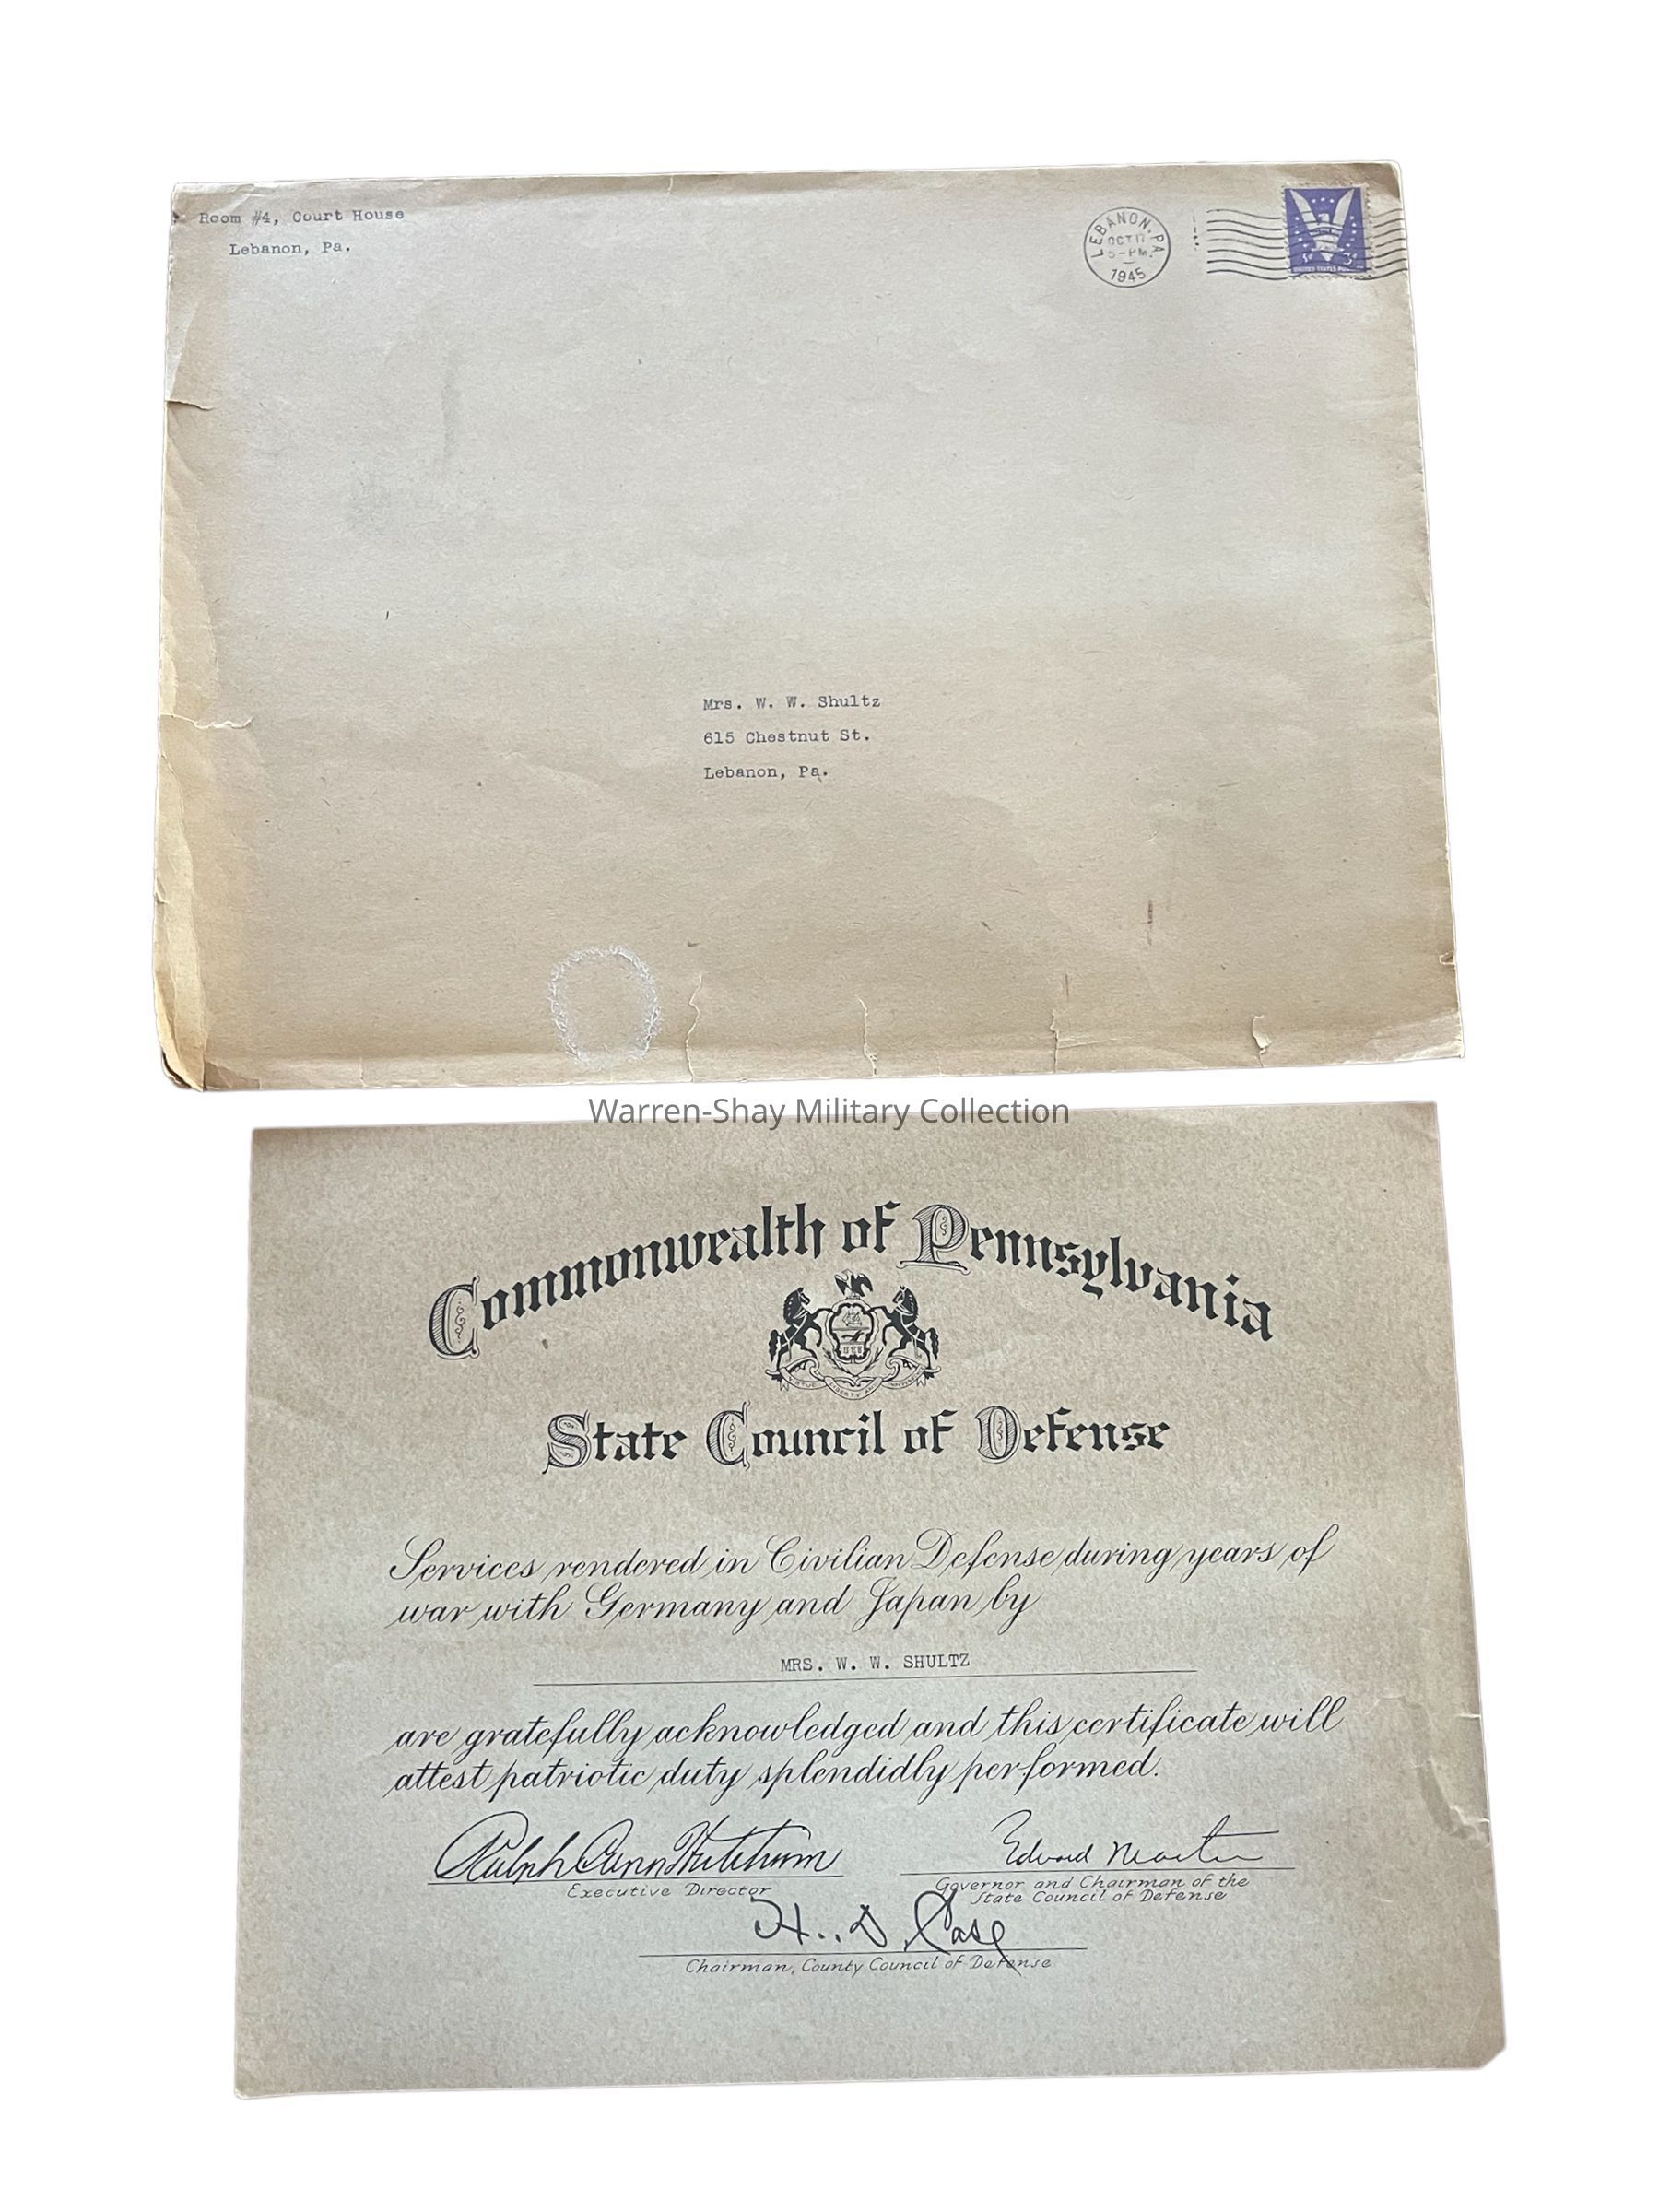 Room #4, Court House
Lebanon, Pa.
LEBANON, PA.
OCT 17
5-PM
1945
3¢
Mrs. W. W. Shultz
615 Chestnut St.
Lebanon, Pa.
Warren-Shay Military Collection
Commonwealth of Pennsylvania
State Council of Defense
Services rendered in Civilian Defense during years of
war with Germany and Japan by
MRS. W. W. SHULTZ
are gratefully acknowledged and this certificate will
attest patriotic duty splendidly performed.
Edward Martin
Executive Director
Governor and Chairman of the
State Council of Defense
H. D. Case
Chairman, County Council of Defense